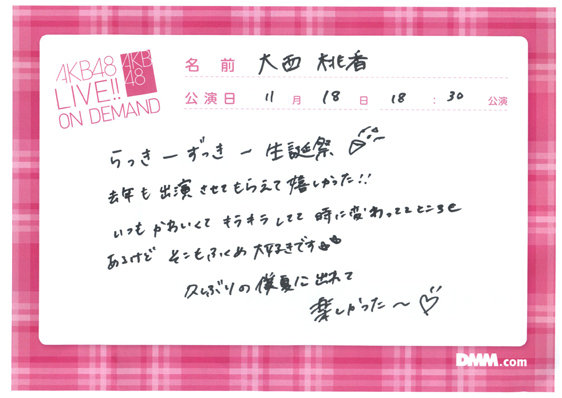 AKB48
LIVE!!
ON DEMAND
AKB
48
名前 大西 桃香
公演日 11月18日 18:30 公演
らっきーずっきー生誕祭
去年も出演させてもらえて嬉しかった!!
いつもかわいくてキラキラしてて時に変わってるところも
あるけど そこもふくめ大好きです
久しぶりの僕夏に出れて
楽しかった〜♡
DMM.com